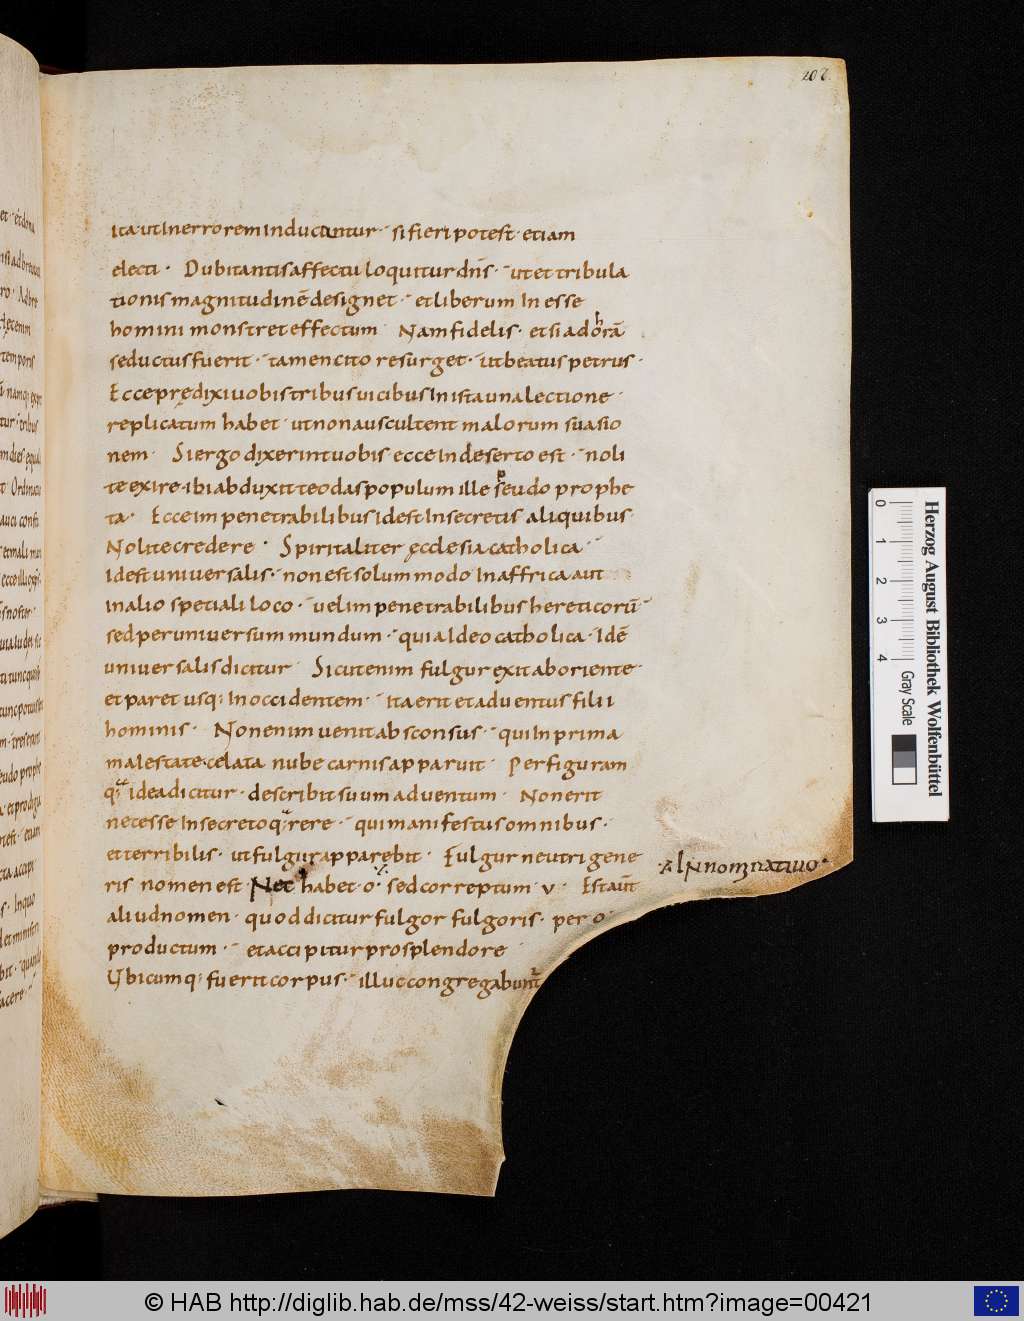 207
ita ut in errorem inducantur · si fieri potest · etiam
electi · Dubitantis affectu loquitur dn̄s · ut et tribula
tionis magnitudinē designet · et liberum in esse
homini monstret effectum Nam fidelis · et si ad horā
seductus fuerit · tamen cito resurget · ut beatus petrus ·
Ecce predixi uobis tribus uicibus in ista una lectione ·
replicatum habet · ut non auscultent malorum suasio
nem · Si ergo dixerint uobis ecce in deserto est · noli
te exire · ibi abduxit teodas populum ille pseudo prophe
ta · Ecce im penetrabilibus id est in secretis aliquibus
Nolite credere · Spiritaliter ęcclesia catholica ·
id est uniuersalis · non est solum modo in affrica aut
in alio speciali loco · uel im penetrabilibus hereticorū
sed per uniuersum mundum · quia ideo catholica · idē
uniuersalis dicitur Sicut enim fulgur exit ab oriente ·
et paret usq; in occidentem · ita erit et aduentus filii
hominis · Non enim uenit absconsus · qui in prima
malestate · celata nube carnis apparuit · Per figuram
q; idea dicitur · describit suum aduentum · Non erit
necesse in secreto q rere · qui manifestus omnibus ·
et terribilis · ut fulgur apparebit · Fulgur neutri gene
ris nomen est Nec habet · o · sed correptum · v · Est aut̄
·Al· In nominatiuo·
aliud nomen · quod dicitur fulgor fulgoris · per o
productum · et accipitur pro splendore
Ubicumq; fuerit corpus · illuc congregabunt
Herzog August Bibliothek Wolfenbüttel
0 1 2 3 4
Gray Scale
© HAB http://diglib.hab.de/mss/42-weiss/start.htm?image=00421